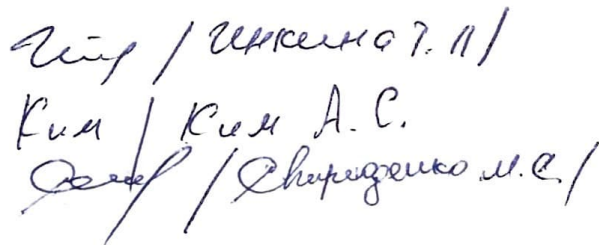 / Инкина Т. П /
Ким / Ким А. С.
/ Свириденко М. С. /